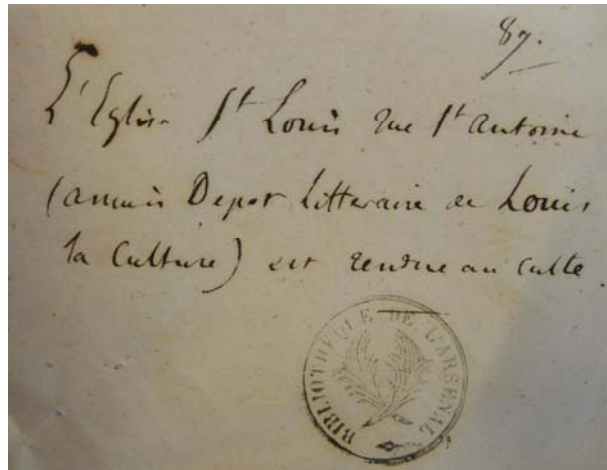 87.
L'Eglise St Louis rue St antoine
(ancien Depot Litteraire de Louis
la Culture) est rendue au culte.
BIBLIOTHEQUE DE L'ARSENAL